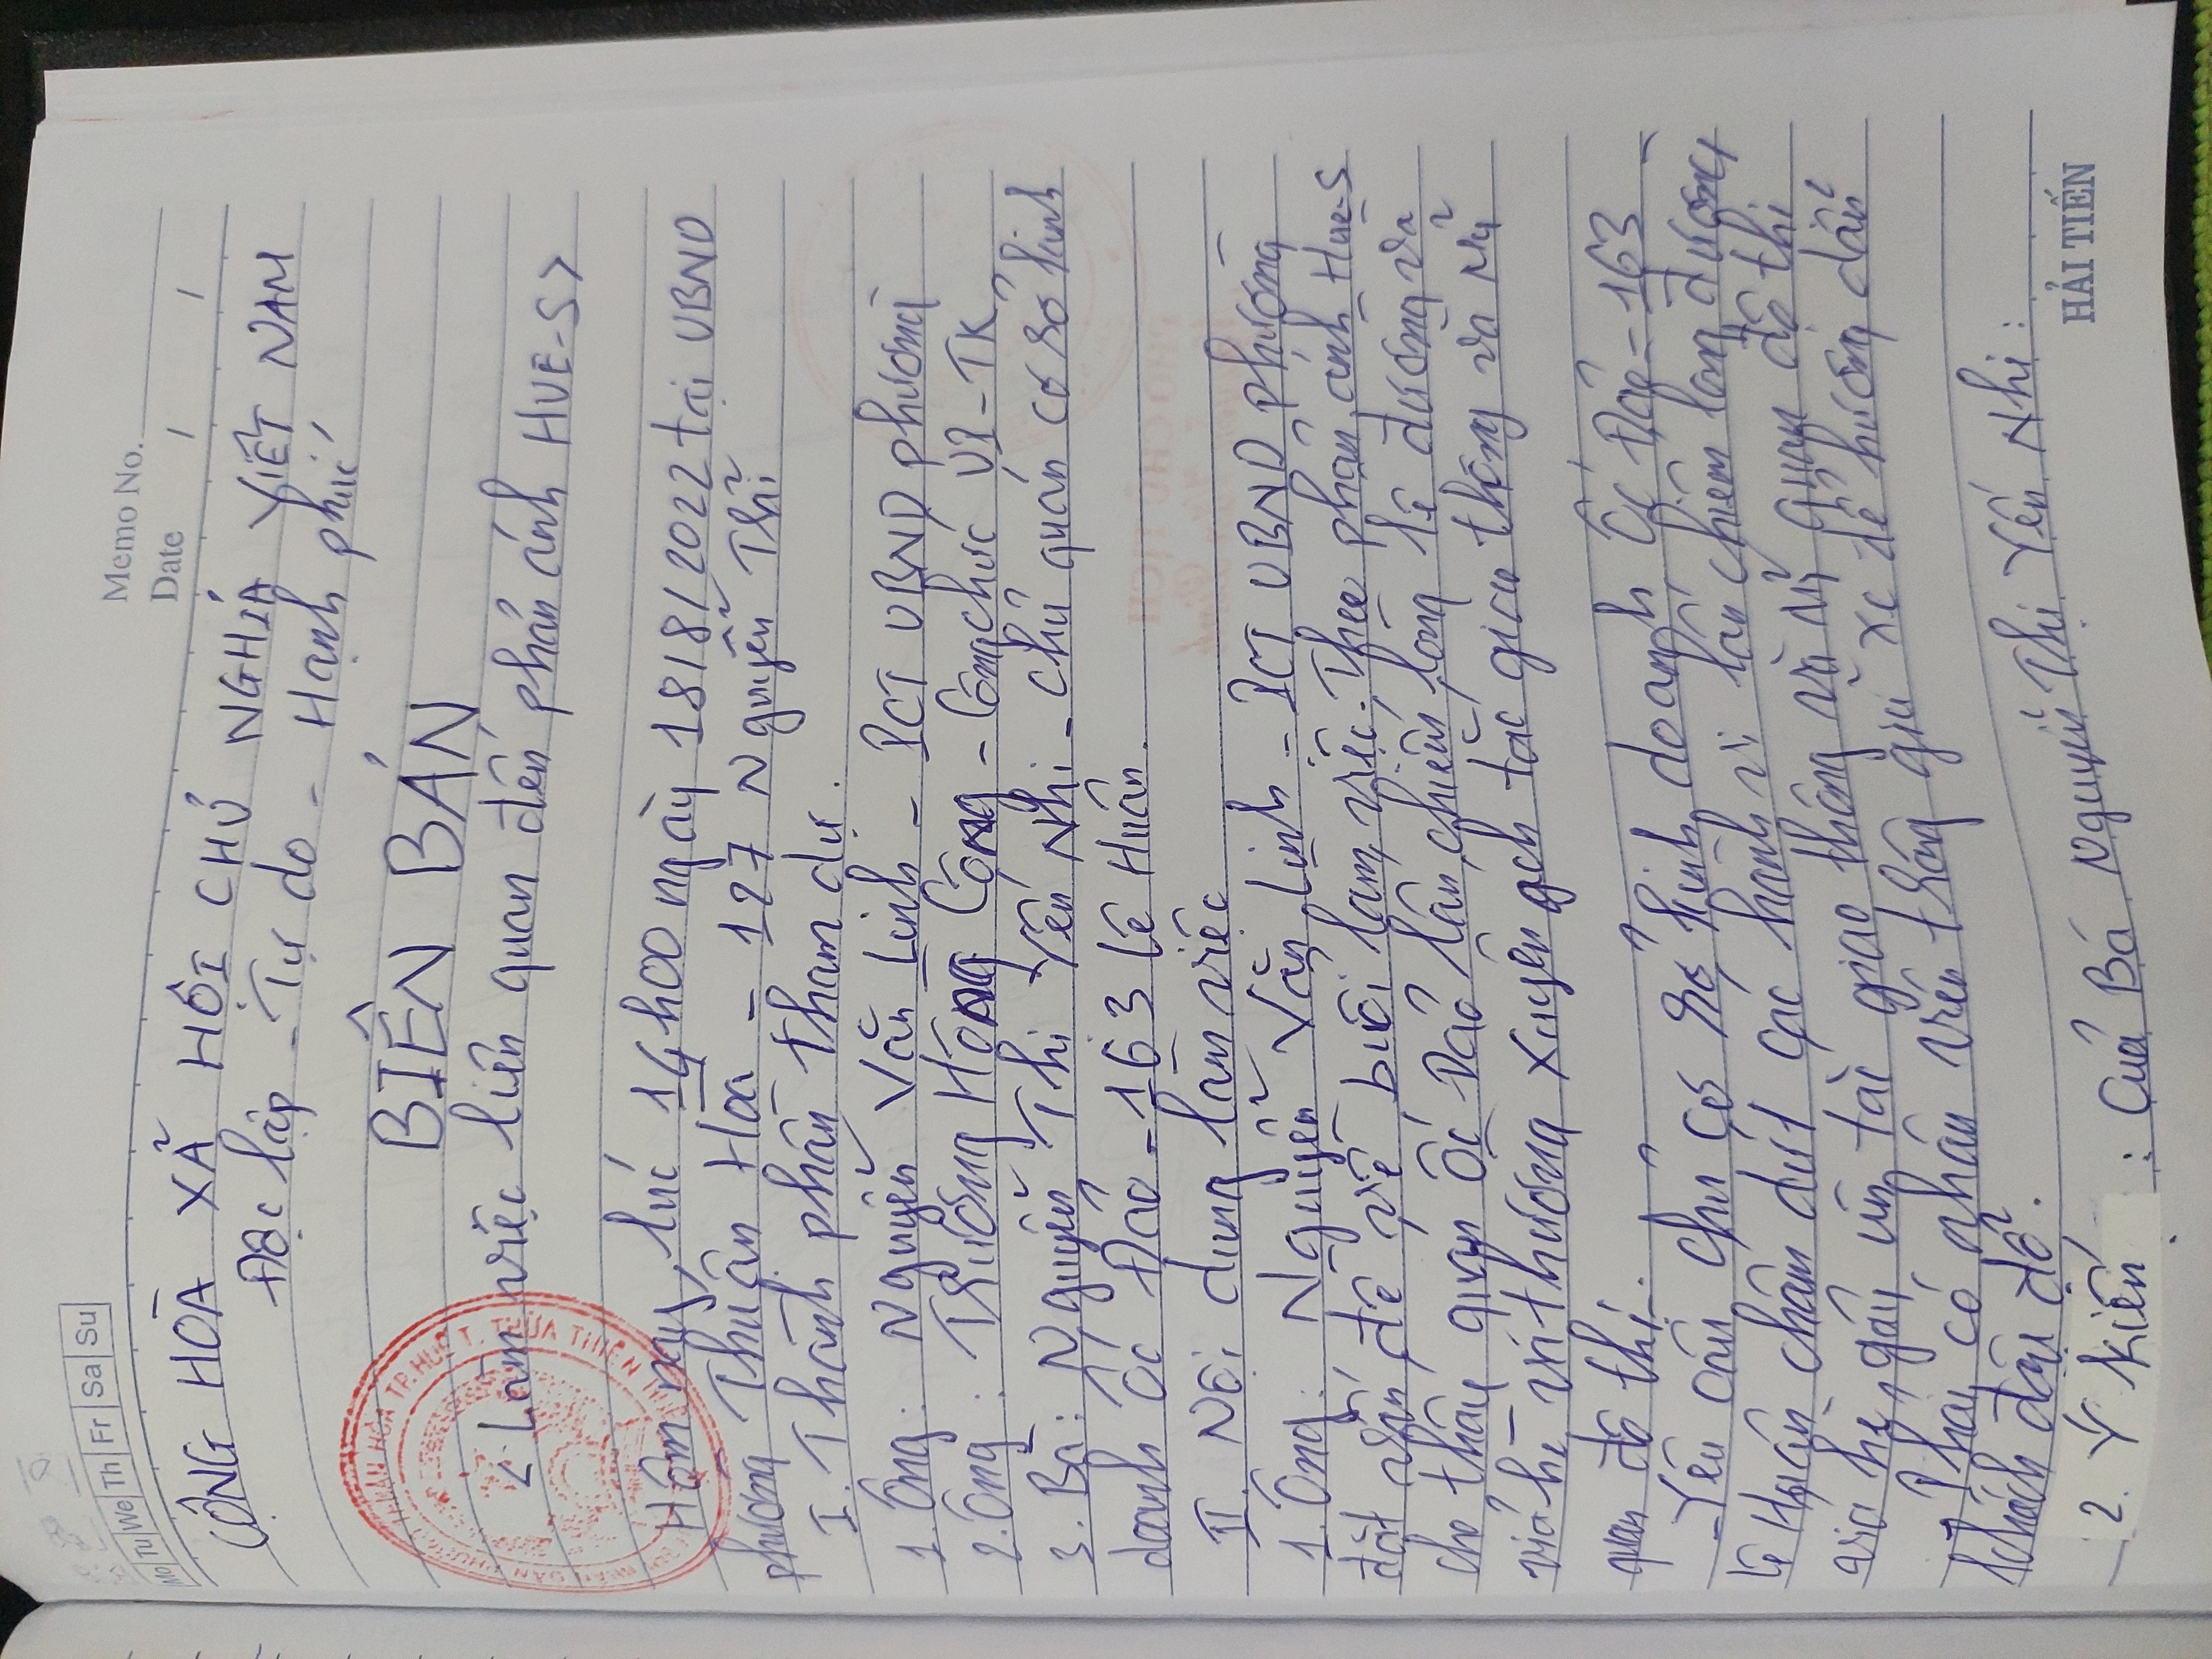 Memo No.
Mo Tu We Th Fr Sa Su
Date / /
CỘNG HÒA XÃ HỘI CHỦ NGHĨA VIỆT NAM
Độc lập - Tự do - Hạnh phúc
BIÊN BẢN
< Làm việc liên quan đến phản ánh HUE-S>
Hôm nay, lúc 14h00 ngày 18/8/2022 tại UBND
phường Thuận Hòa - 127 Nguyễn Thị
I. Thành phần tham dự.
1. Ông: Nguyễn Văn Linh - PCT UBND phường
2. Ông: Trương Hồng Công - Công chức VP-TK
3. Bà: Nguyễn Thị Yến Nhi - chủ quán cơ sở kinh
doanh Ốc Đảo - 163 Lê Huân.
II. Nội dung làm việc
1. Ông: Nguyễn Văn Linh - PCT UBND phường
đặt vấn đề về buổi làm việc. Theo phản ánh Hue-S
cho thấy quán Ốc Đảo lấn, chiếm lòng lề đường và
vỉa hè vi thường xuyên gây tắc giao thông và mỹ
quan đô thị.
- Yêu cầu chủ cơ sở kinh doanh Ốc Đảo - 163
Lê Huân chấm dứt các hành vi lấn chiếm lòng đường
vỉa hè, gây ùn tắc giao thông và mỹ quan đô thị
Phải có nhân viên trông giữ xe để hướng dẫn
khách đậu đỗ.
2. Ý kiến: Của Bà Nguyễn Thị Yến Nhi:
HẢI TIẾN